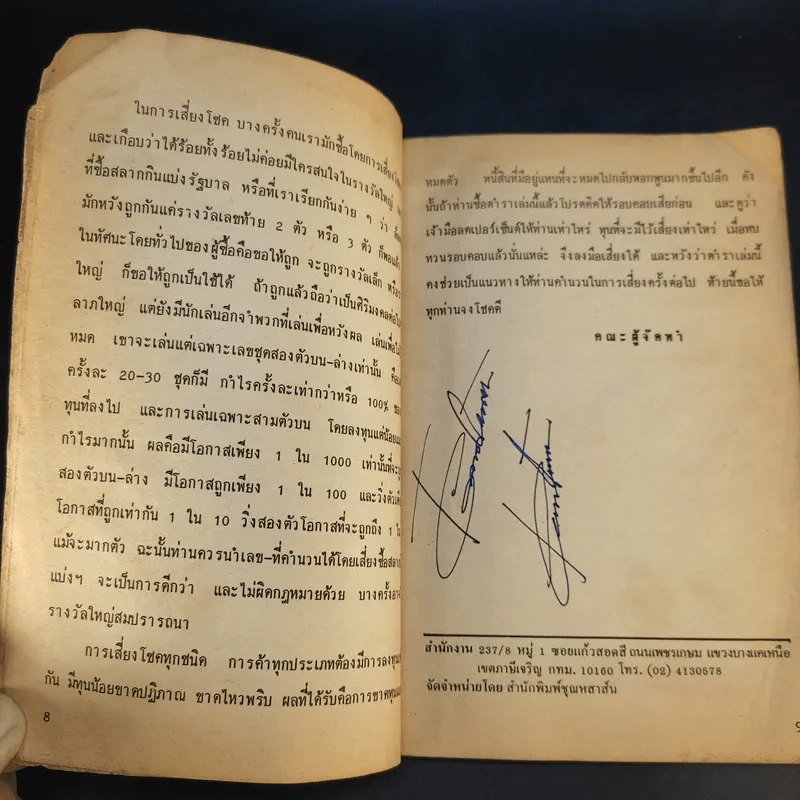 ในการเสี่ยงโชค บางครั้งคนเรามักซื้อโดยการเสี่ยง
และเกือบว่าได้ร้อยทั้งร้อยไม่ค่อยมีใครสนใจในรางวัลใหญ่
ที่ซื้อสลากกินแบ่งรัฐบาล หรือที่เราเรียกกันง่าย ๆ ว่า
มักหวังถูกกันแค่รางวัลเลขท้าย 2 ตัว หรือ 3 ตัว ก็พอแล้ว
ในทัศนะโดยทั่วไปของผู้ซื้อคือขอให้ถูก จะถูกรางวัลเล็ก หรือ
ใหญ่ ก็ขอให้ถูกเป็นใช้ได้ ถ้าถูกแล้วถือว่าเป็นศิริมงคลต่อ
ลาภใหญ่ แต่ยังมีนักเล่นอีกจำพวกที่เล่นเพื่อหวังผล เล่นเพื่อ
หมด เขาจะเล่นแต่เฉพาะเลขชุดสองตัวบน-ล่างเท่านั้น
ครั้งละ 20-30 ชุดก็มี กำไรครั้งละเท่ากว่าหรือ 100%
ทุนที่ลงไป และการเล่นเฉพาะสามตัวบน โดยลงทุนแต่น้อย
กำไรมากนั้น ผลคือมีโอกาสเพียง 1 ใน 1000 เท่านั้นที่จะ
สองตัวบน-ล่าง มีโอกาสถูกเพียง 1 ใน 100 และวิ่งตัว
โอกาสที่ถูกเท่ากัน 1 ใน 10 วิ่งสองตัวโอกาสที่จะถูกถึง 1
แม้จะมากตัว ฉะนั้นท่านควรนำเลข-ที่คำนวนได้โดยเสี่ยงซื้อสลาก
แบ่งฯ จะเป็นการดีกว่า และไม่ผิดกฎหมายด้วย บางครั้ง
รางวัลใหญ่สมปรารถนา
การเสี่ยงโชคทุกชนิด การค้าทุกประเภทต้องมีการลงทุน
กัน มีทุนน้อยขาดปฏิภาณ ขาดไหวพริบ ผลที่ได้รับคือการขาดทุน
8
หมดตัว หนี้สินที่มีอยู่แทนที่จะหมดไปกลับพอกพูนมากขึ้นไปอีก ดัง
นั้นถ้าท่านซื้อตำราเล่มนี้แล้วโปรดคิดให้รอบคอบเสียก่อน และดูว่า
เจ้ามือลดเปอร์เซ็นต์ให้ท่านเท่าไหร่ ทุนที่จะมีไว้เสี่ยงเท่าไหร่ เมื่อทบ
ทวนรอบคอบแล้วนั่นแหละ จึงลงมือเสี่ยงได้ และหวังว่าตำราเล่มนี้
คงช่วยเป็นแนวทางให้ท่านคำนวนในการเสี่ยงครั้งต่อไป ท้ายนี้ขอให้
ทุกท่านจงโชคดี
คณะผู้จัดทำ
สำนักงาน 237/8 หมู่ 1 ซอยแก้วสอดสี ถนนเพชรเกษม แขวงบางแคเหนือ
เขตภาษีเจริญ กทม. 10160 โทร. (02) 4130578
จัดจำหน่ายโดย สำนักพิมพ์ชุณหสาส์น
9